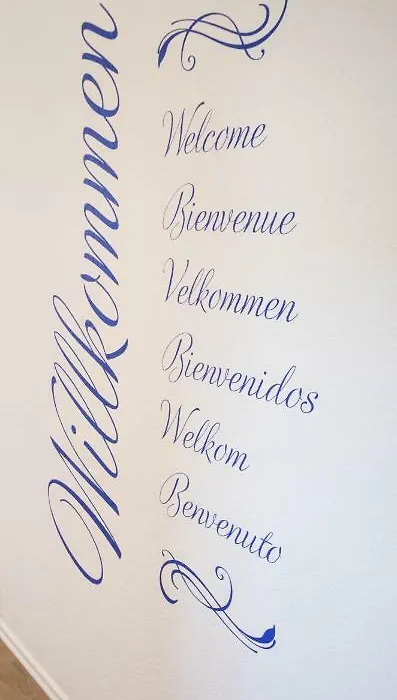 Willkommen
Welcome
Bienvenue
Velkommen
Bienvenidos
Welkom
Benvenuto